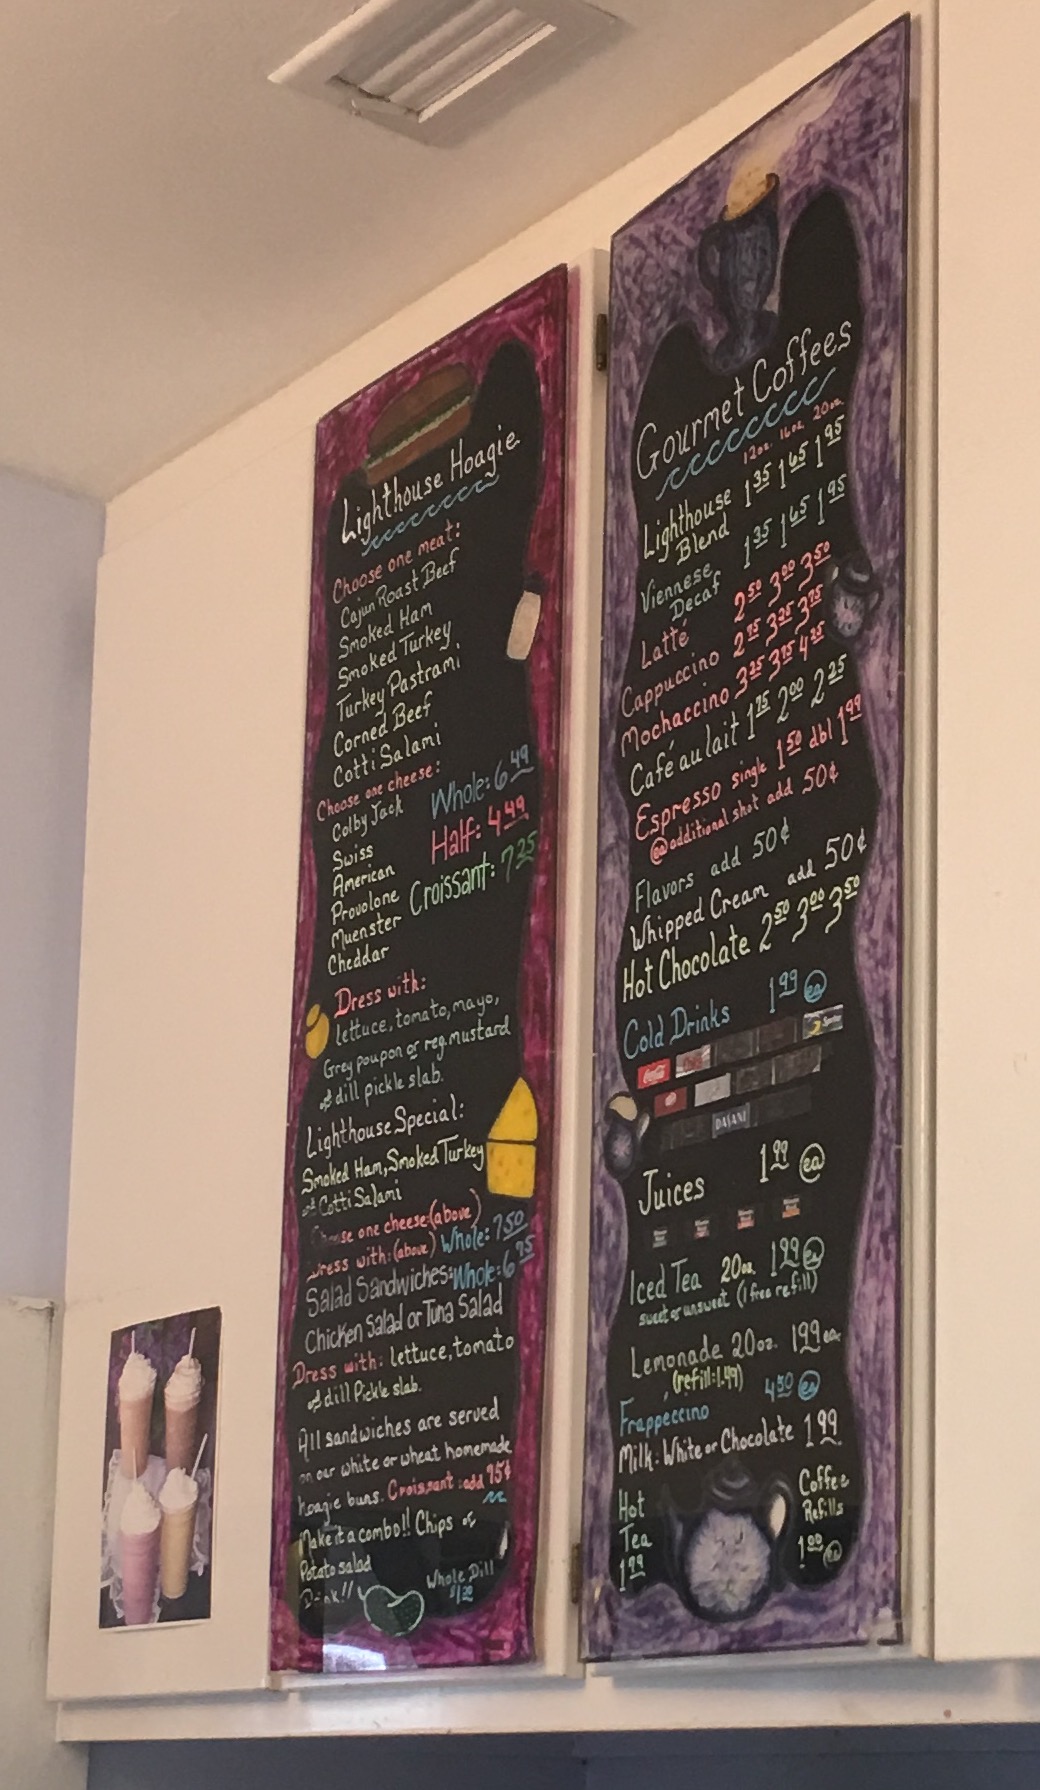 Lighthouse Hoagie
Choose one meat:
Cajun Roast Beef
Smoked Ham
Smoked Turkey
Turkey Pastrami
Corned Beef
Cotti Salami
Choose one cheese:
Colby Jack
Swiss
American
Provolone
Muenster
Cheddar
Whole: 6 49
Half: 4 49
Croissant: 7 25
Dress with:
lettuce, tomato, mayo,
Grey poupon or reg. mustard
and dill pickle slab.
Lighthouse Special:
Smoked Ham, Smoked Turkey
and Cotti Salami
Choose one cheese: (above)
Dress with: (above) Whole: 7 50
Salad Sandwiches: Whole: 6 75
Chicken Salad or Tuna Salad
Dress with: lettuce, tomato
and dill Pickle slab.
All sandwiches are served
on our white or wheat homemade
hoagie buns. Croissant: add 95¢
Make it a combo!! Chips or
Potato salad
Drink!!
Whole Dill
$1.00
Gourmet Coffees
12oz. 16oz. 20oz.
Lighthouse Blend 1 35 1 65 1 95
Viennese Decaf 1 35 1 65 1 95
Latté 2 50 3 00 3 50
Cappuccino 2 75 3 25 3 75
Mochaccino 3 25 3 75 4 25
Café au lait 1 75 2 00 2 25
Espresso single 1 50 dbl 1 99
ea additional shot add 50¢
Flavors add 50¢
Whipped Cream add 50¢
Hot Chocolate 2 50 3 00 3 50
Cold Drinks 1 99 ea
Coca-Cola
Sprite
DASANI
Juices 1 99 ea
Iced Tea 20oz. 1 99 ea
sweet or unsweet (1 free refill)
Lemonade 20oz. 1 99 ea.
(refill: 1.49)
Frappéccino 4 50 ea
Milk: White or Chocolate 1 99
Hot
Tea
1 99
Coffee
Refills
1 00 ea